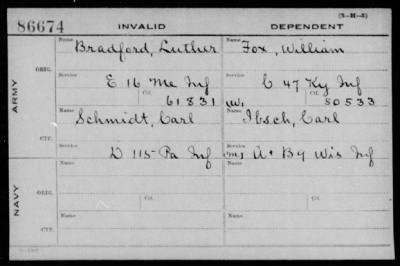 (3-H-3)
86674 INVALID DEPENDENT
Name Name
Bradford, Luther Fox, William
ORIG.
Service Service
E 16 Me Inf C 47 Ky Inf
Ctf. Ctf.
61831 W. 50533
ARMY
Name Name
Schmidt, Carl Ibsch, Carl
CTF.
Service Service
D 115 Pa Inf A + B 9 Wis Inf
Name Name
ORIG.
Service Service
Ctf. Ctf.
NAVY
Name Name
CTF.
Service Service